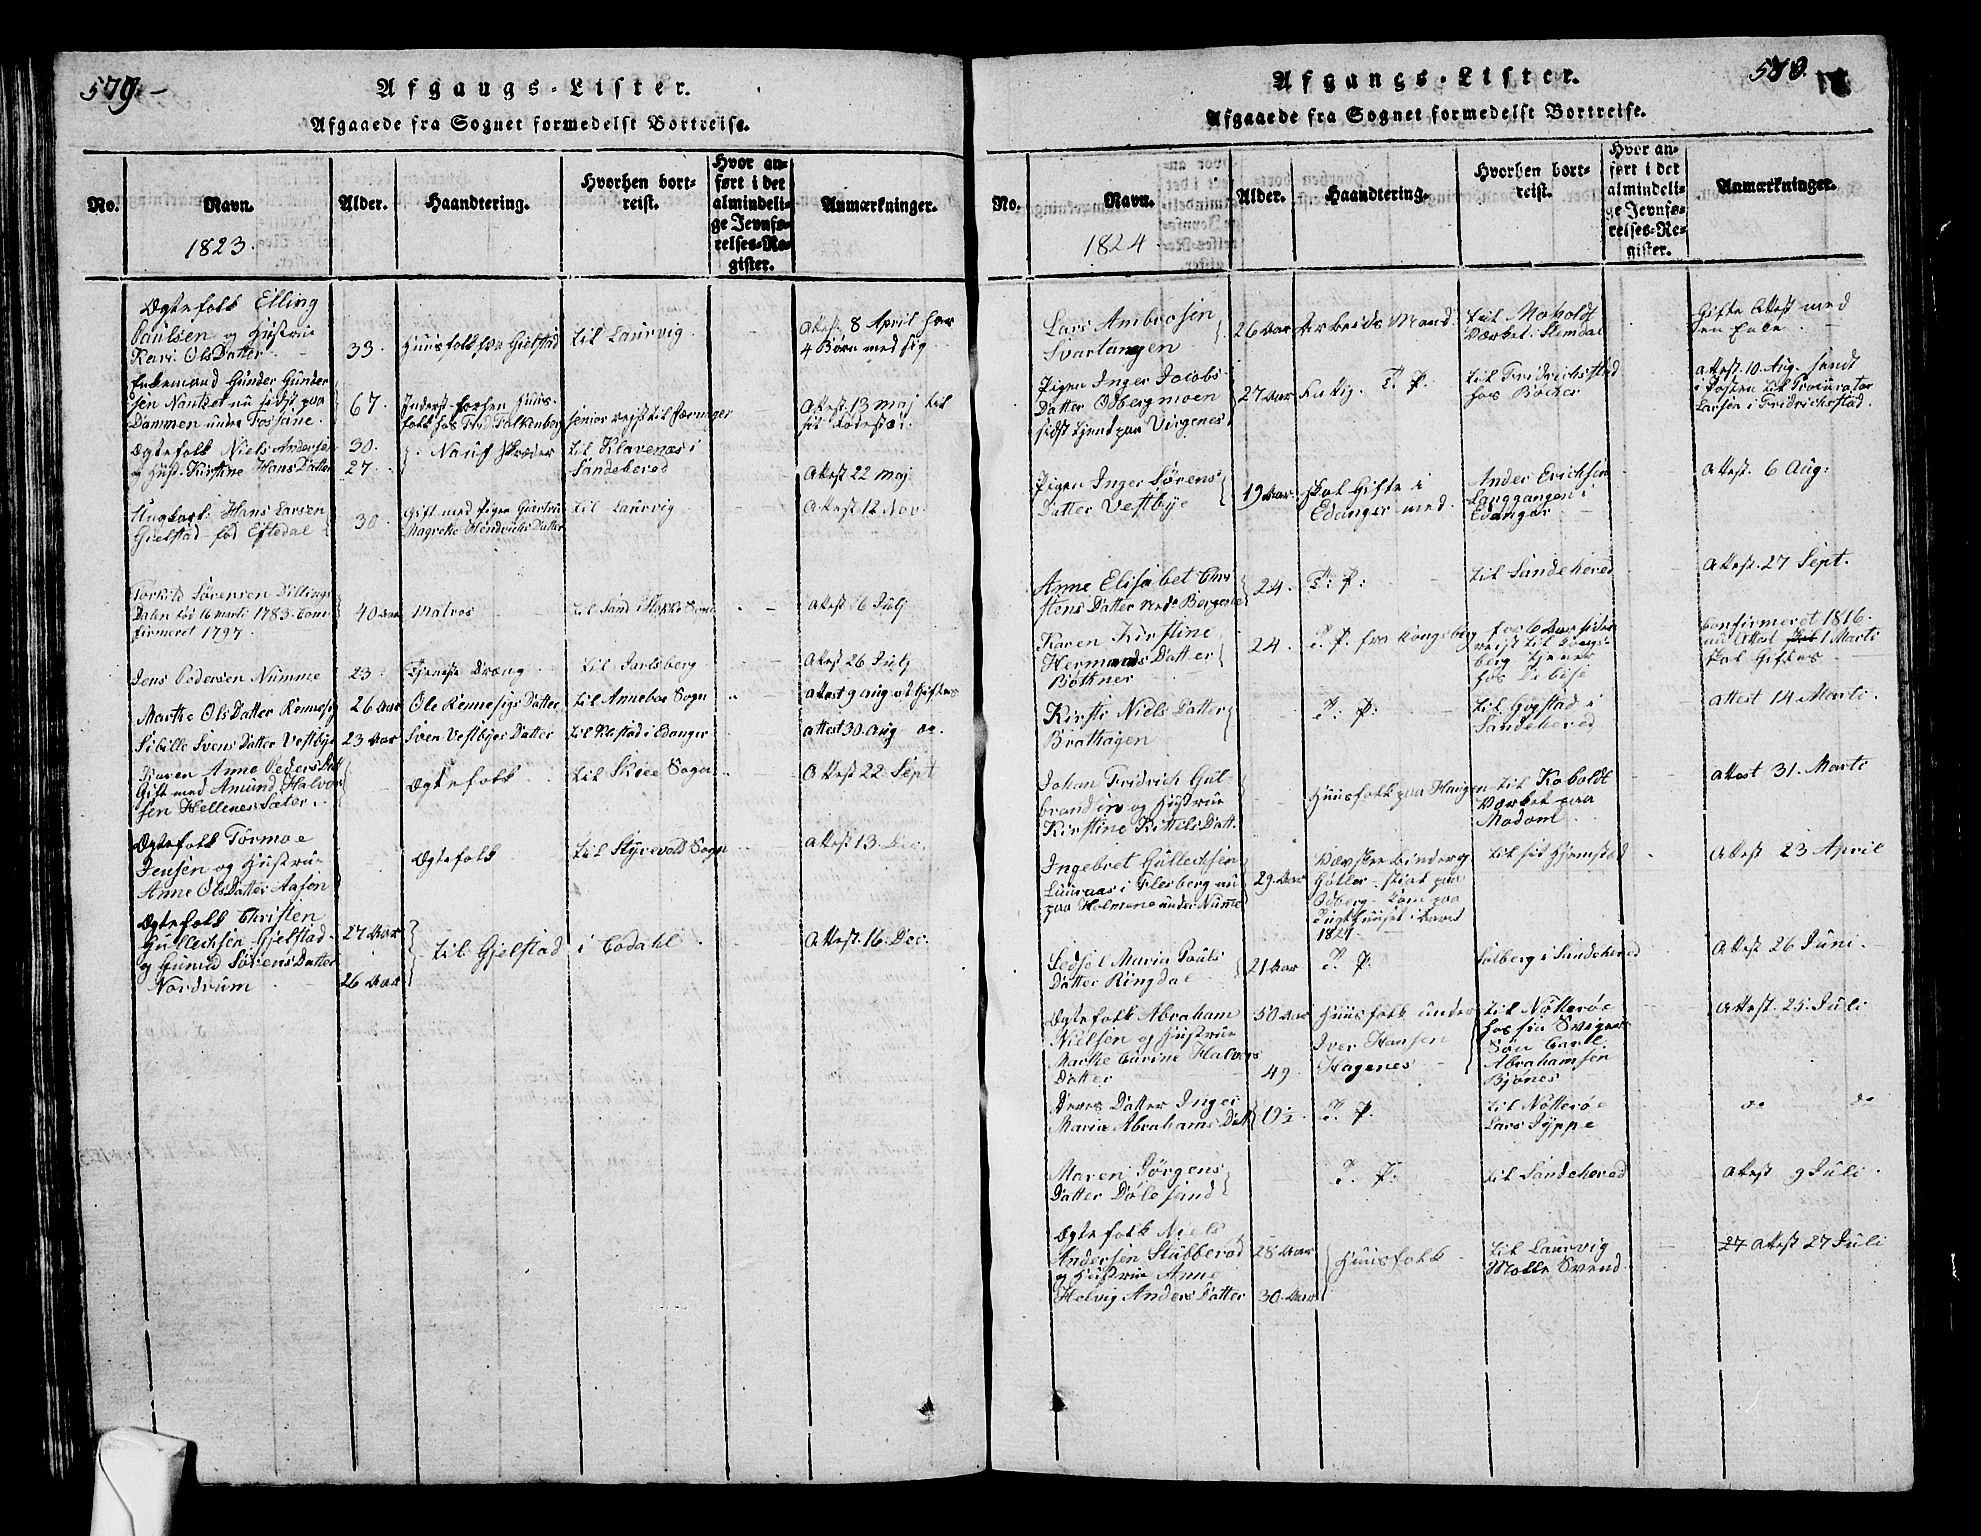 579.-
Afgangs-Lister.
Afgaaede fra Sognet formedelst Bortreise.
No.
Navn.
1823.
Alder.
Haandtering.
Hvorhen bort-
reist.
Hvor an-
ført i det
almindeli-
ge Jevnfø-
relses-Re-
gister.
Anmærkninger.
Ægtefolk Elling
Paulsen og Hustrue
Kari OlsDatter
33.
Huusfolk fra Gielstad
til Laurvig
Attest 8 April har
4 Børn med sig
Enkemand Gunder Gunder
sen Nantset nu sidst paa
Dammen under Fossane.
67.
Attest 13 maj til
Ægtefolk Niels Andersen
og Hust. Kirstine HansDatter
30.
27.
Skræder
til Klavenæs i
Sandehered
Attest 22 maj
Ungkarl Hans Larsen
Gielstad fød Eftedal
30
Gift med Pigen
Magrete HendrichsDatter
til Laurvig
Attest 12 Nov.
Torkild Sørensen Dilling
Dalen fød 16 marti 1783. Con
firmeret 1797.
40 aar
Matros
Attest 16 Julj
Jens Pedersen Numme
23.
Tjeneste Dræng
til Jarlsberg
Attest 26 Julj
Marthe OlsDatter Rennesig
26 aar
Ole Rennesigs Datter
til Annebøe Sogn
Attest 9 aug at Giftes
Sibille SvensDatter Vestbye
23 aar
Sven Vestbyes Datter
til Klestad i Edanger
attest 30 Aug
Anne PedersDatt
Gift med Amund Halvor
sen HellenesSæter.
Ægtefolk
til Skiee Sogn
Attest 22 Sept
Ægtefolk Tormoe
Jensen og Hustrue
Anne OlsDatter Aason
Ægtefolk
til Styrvold Sogn
Attest 13 Dec.
Ægtefolk Christen
Gullechsen Gjelstad
og Gunild SørensDatter
Nordrum
27 Aar
26 Aar
til Gjelstad i Codahl
Attest. 16. Dec.
580.
Afgangs-Lister.
Afgaaede fra Sognet formedelst Bortreise.
No.
Navn.
1824.
Alder.
Haandtering.
Hvorhen bort-
reist.
Hvor an-
ført i det
almindeli-
ge Jevnfø-
relses-Re-
gister.
Anmærkninger.
Lars Ambrosen
Svartangen
26 aar
Arbeids Mand
til Moholdt
Værket. Slemdal
Gifte Attest med
en Enke.
Pigen Inger Jacobs
Datter Odbergmoen
sidst tjent paa Virgenes
27 aar
Fattig. T. P.
til Fridrichsstad
hos
attest. 10. Aug. sendt
i Posten til Procurator
Larsen i Fridrichstad
Pigen Inger Sørens
Datter Vestbye
19 aar
skal Gifte i
Edanger med
Ander Erichsen
Langgangen i
Edanger
Attest. 6 Aug:
Anne Elisabet Chri
stens Datter
24.
T: P:
til Sandehered
Attest. 27 Sept.
Karen Kirstine
Hermands Datter
Bøthner
24.
T. P. fra Kongsberg
reist til Kongs
berg tjener
hos
Confirmeret 1816.
1 Marti
skal Giftes
Kirsti Niels Datter
Bratthagen
T: P:
til Gogstad i
Sandehered
Attest 14 Marti.
Johan Fridrich Gul
brandsen og Hustrue
Kirstine KittilsDatt.
Huusfolk paa Haugen
til Koboldt
Værket paa
Modoml
Attest 31. Marti
Ingebret Gullechsen
Lauraas i Flesberg nu
paa Holmene under Numme
29. Aar
Odberg - kom paa
Tugthuuset i Aaret
1821
til sit Hjemsted
Attest 23 April
Sedsel Maria Pouls
Datter Ringdal
21 Aar
T. P.
Solberg i Sandehered
Attest 26 Juni.
Ægtefolk Abraham
Nielsen og Hustrue
Marthe Carine Halvors
Datter
50 aar
49.
Huusfolk under
Iver Hansen
Hagenes
til Nøtterøe
hos sin Sviger
Søn Carl
Abrahamsen
Bjønes
Attest. 25. Juli
Deres Datter Inger
Maria AbrahamsDatt
19½.
T. P.
til Nøtterøe
Lars Pyppe
do
do
Maren Jørgens
Datter Dølesand
T. P:
til Sandehered
Attest 9 Juli.
Ægtefolk Niels
Andersen Stubberød
og Hustrue Anne
Helvig Anders Datter
28 Aar
30. Aar
Huusfolk
til Laurvig
Molle Svend
27 Attest 27 Juli